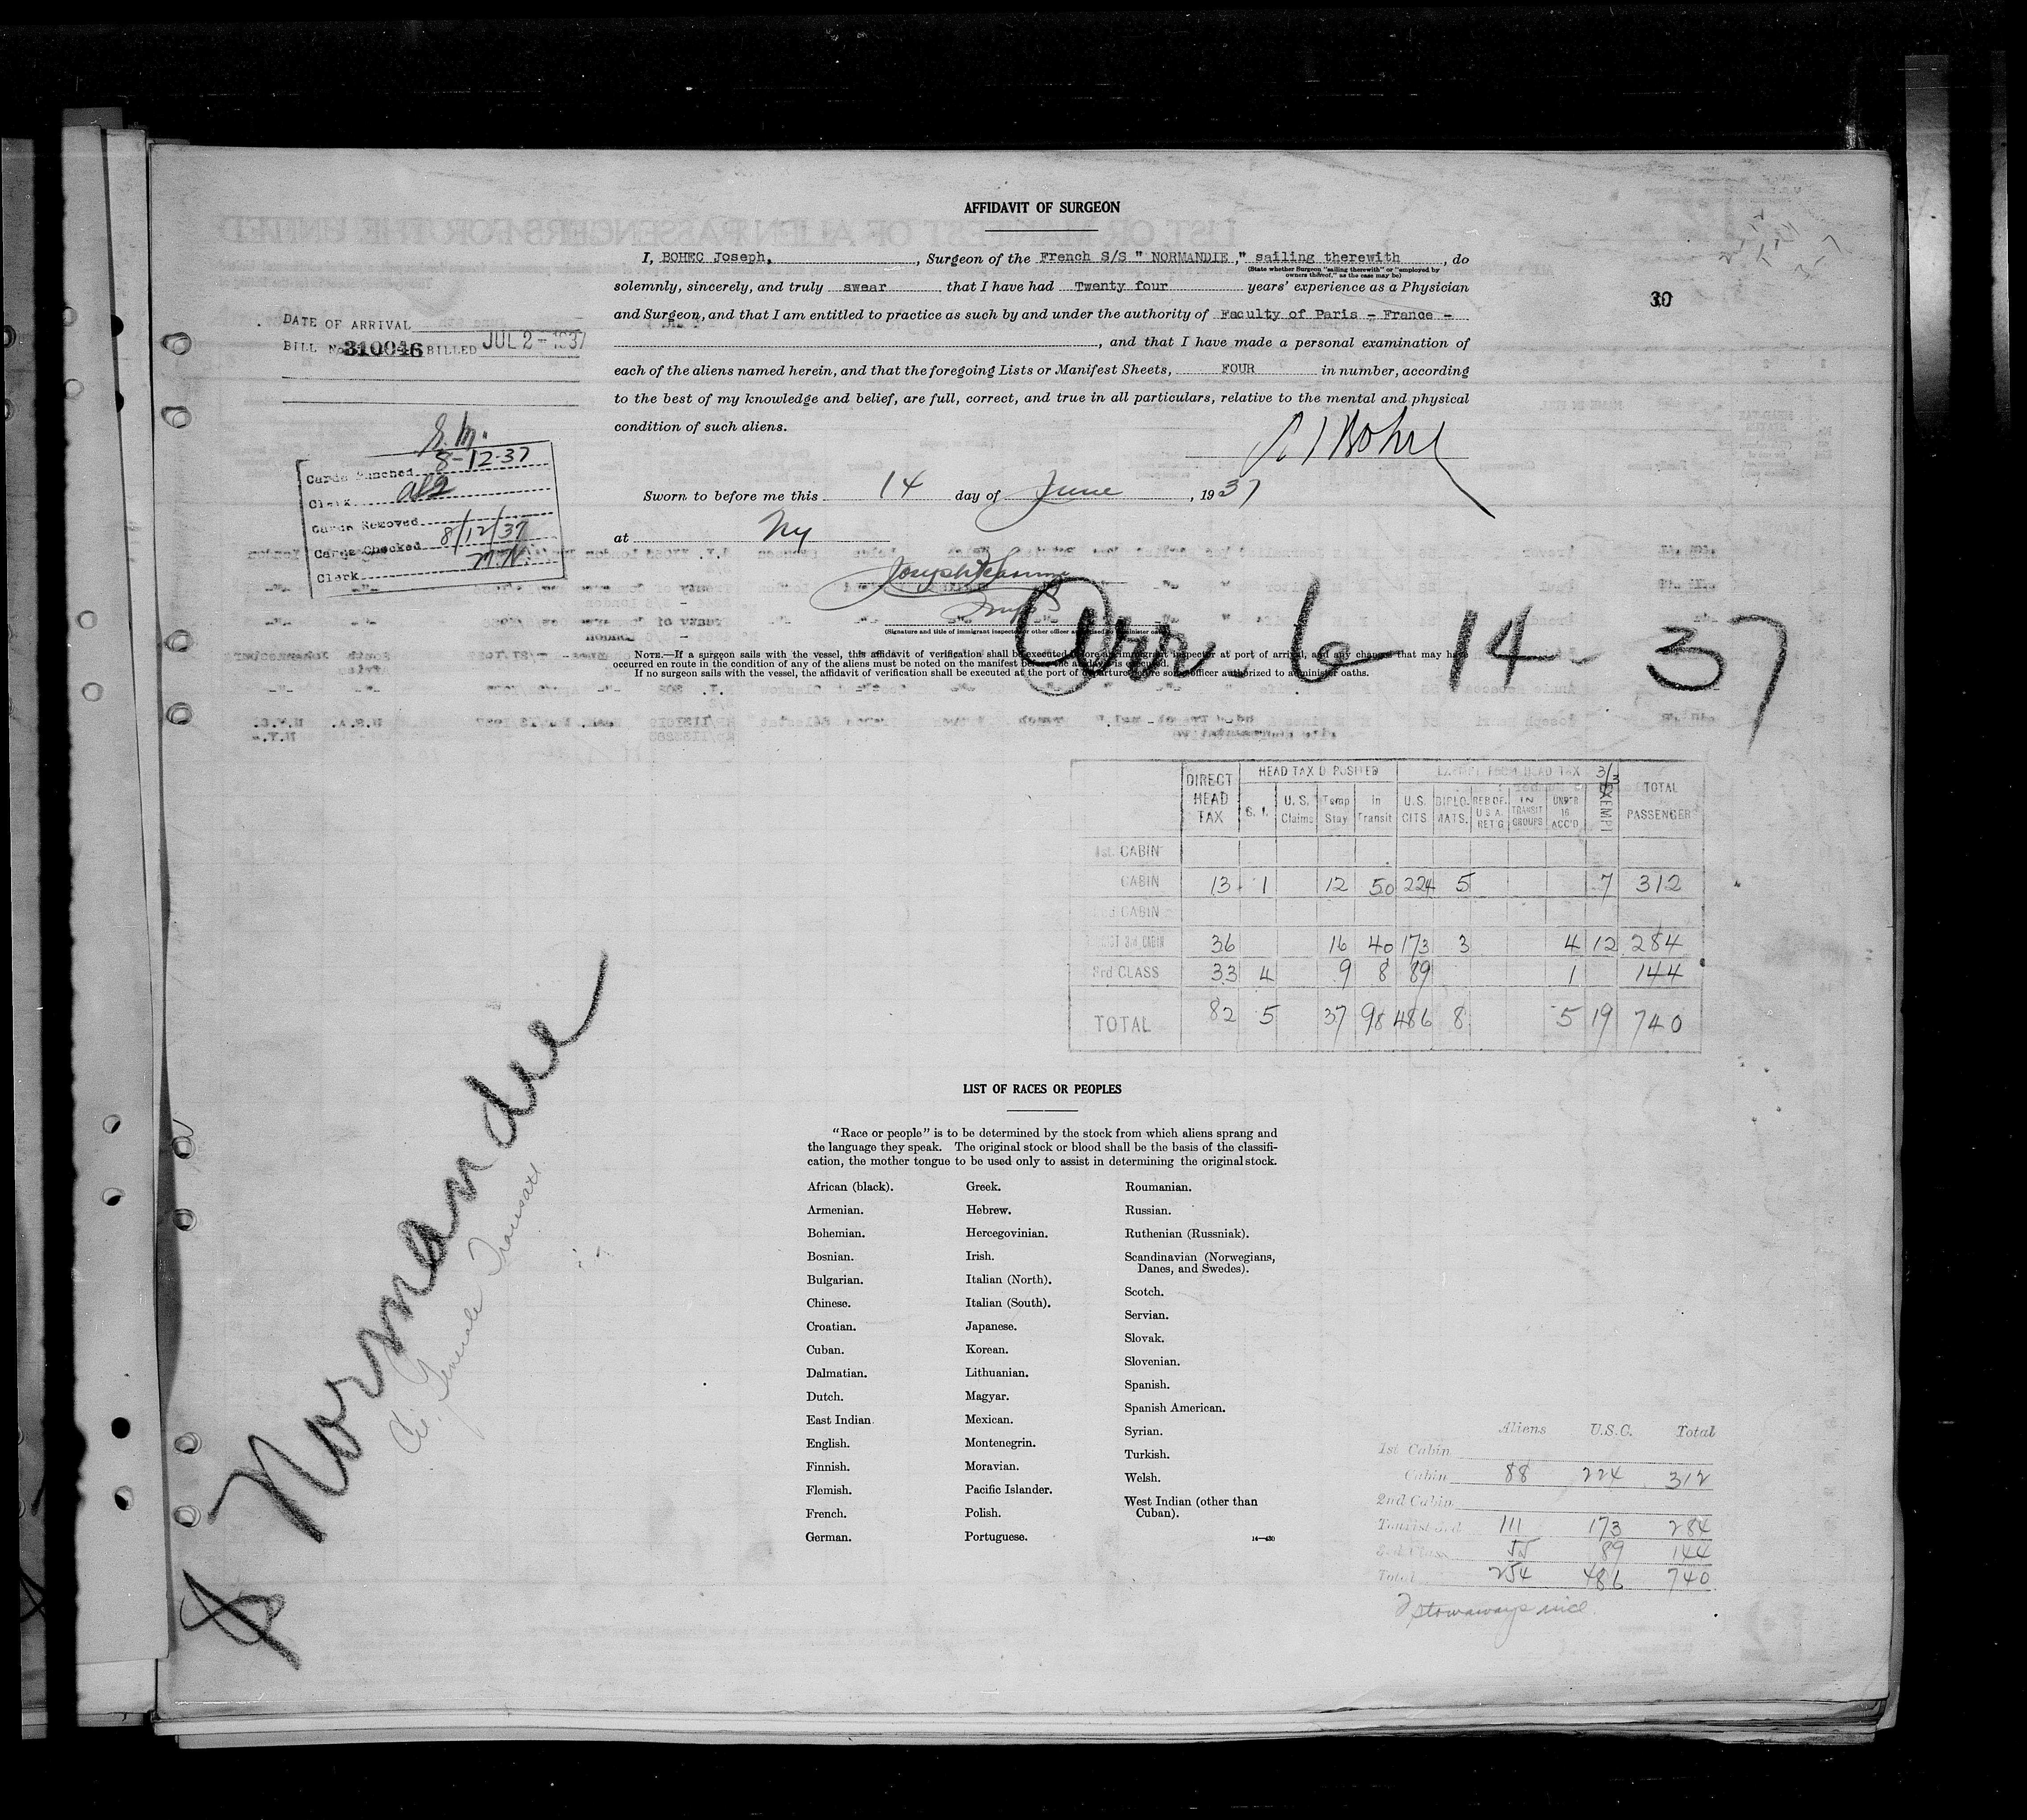 AFFIDAVIT OF SURGEON
I, BOHEC Joseph, , Surgeon of the French S/S " NORMANDIE ," sailing therewith , do
(State whether Surgeon "sailing therewith" or "employed by
owners thereof," as the case may be)
solemnly, sincerely, and truly swear that I have had Twenty four years' experience as a Physician
and Surgeon, and that I am entitled to practice as such by and under the authority of Faculty of Paris - France -
, and that I have made a personal examination of
each of the aliens named herein, and that the foregoing Lists or Manifest Sheets, FOUR in number, according
to the best of my knowledge and belief, are full, correct, and true in all particulars, relative to the mental and physical
condition of such aliens.
30
DATE OF ARRIVAL
BILL No 310046 BILLED JUL 2 - 1937
8-12-37
Cards Punched
Clerk
Cards Removed
Cards Checked 8/12/37
Clerk M.N.
Sworn to before me this 14 day of June , 1937
at Ny
(Signature and title of immigrant inspector or other officer authorized to administer oaths)
Arr 6 - 14 - 37
NOTE.—If a surgeon sails with the vessel, this affidavit of verification shall be executed before an immigrant inspector at port of arrival, and any changes that may have
occurred en route in the condition of any of the aliens must be noted on the manifest before the affidavit is executed.
If no surgeon sails with the vessel, the affidavit of verification shall be executed at the port of departure before some officer authorized to administer oaths.
DIRECT HEAD TAX HEAD TAX DEPOSITED EXEMPT FROM HEAD TAX 3/3 EXEMPT TOTAL PASSENGERS
S. I. U.S. Claims Temp Stay In Transit U.S. CITS DIPLOMATS. RES OF U.S.A. RET'G IN TRANSIT GROUPS UND'R 16 ACC'D
1st. CABIN
CABIN 13 1 12 50 224 5 7 312
CABIN
TOURIST 3rd CABIN 36 16 40 173 3 4 12 284
3rd CLASS 33 4 9 8 89 1 144
TOTAL 82 5 37 98 486 8 5 19 740
Normandie
Cie Generale Transatl
LIST OF RACES OR PEOPLES
"Race or people" is to be determined by the stock from which aliens sprang and
the language they speak. The original stock or blood shall be the basis of the classifi-
cation, the mother tongue to be used only to assist in determining the original stock.
African (black).
Armenian.
Bohemian.
Bosnian.
Bulgarian.
Chinese.
Croatian.
Cuban.
Dalmatian.
Dutch.
East Indian.
English.
Finnish.
Flemish.
French.
German.
Greek.
Hebrew.
Hercegovinian.
Irish.
Italian (North).
Italian (South).
Japanese.
Korean.
Lithuanian.
Magyar.
Mexican.
Montenegrin.
Moravian.
Pacific Islander.
Polish.
Portuguese.
Roumanian.
Russian.
Ruthenian (Russniak).
Scandinavian (Norwegians,
Danes, and Swedes).
Scotch.
Servian.
Slovak.
Slovenian.
Spanish.
Spanish American.
Syrian.
Turkish.
Welsh.
West Indian (other than
Cuban).
14—430
Aliens U.S.C. Total
1st Cabin
Cabin 88 224 312
2nd Cabin
Tourist 3rd 111 173 284
3rd Class 55 89 144
Total 254 486 740
2 stowaways incl